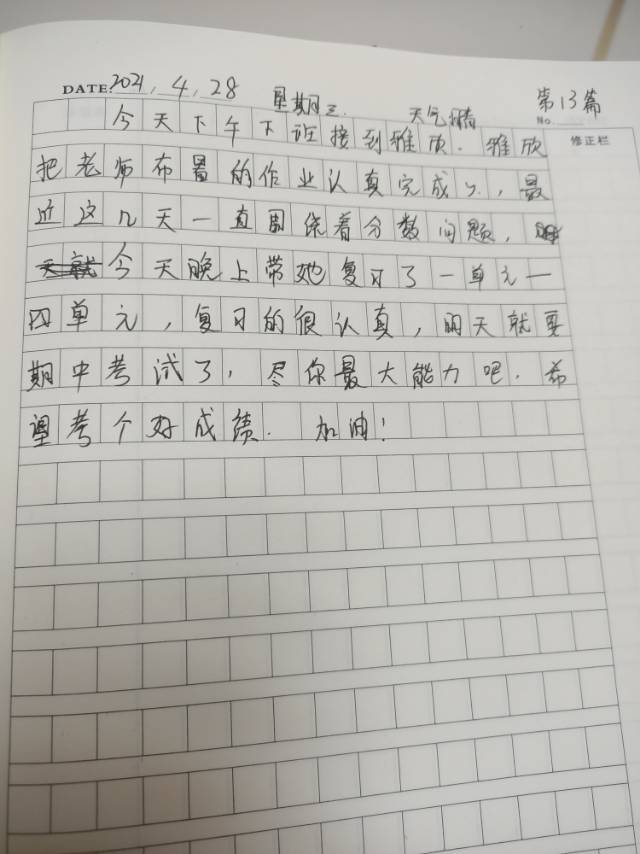 DATE: 2021, 4, 28 星期三 天气晴 No 第13篇
修正栏
今天下午下课接到雅欣. 雅欣
把老师布置的作业认真完成了, 最
近这几天一直围绕着分数问题,
今天晚上带她复习了一单元一
四单元, 复习的很认真, 明天就要
期中考试了, 尽你最大能力吧. 希
望考个好成绩. 加油!